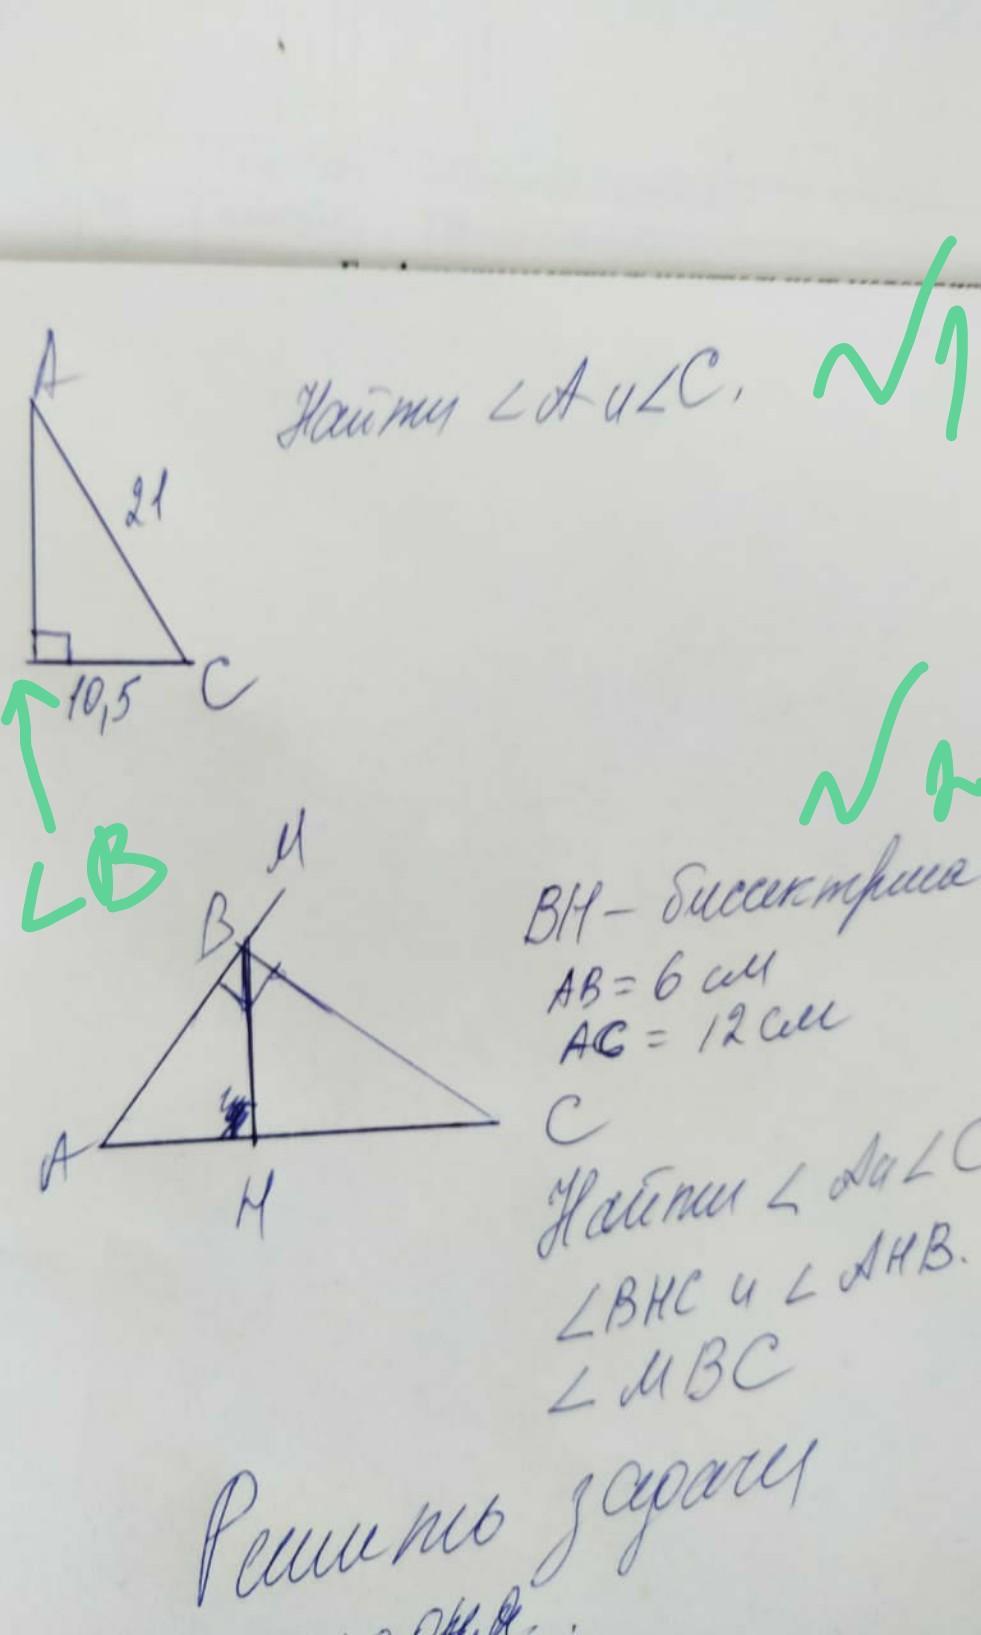 √1
A
Найти ∠A и ∠C.
21
10,5
C
∠B
√2
M
B
BH – биссектриса
AB = 6 см
AC = 12 см
C
A
H
Найти ∠A и ∠C
∠BHC и ∠AHB.
∠MBC
Решить задачи